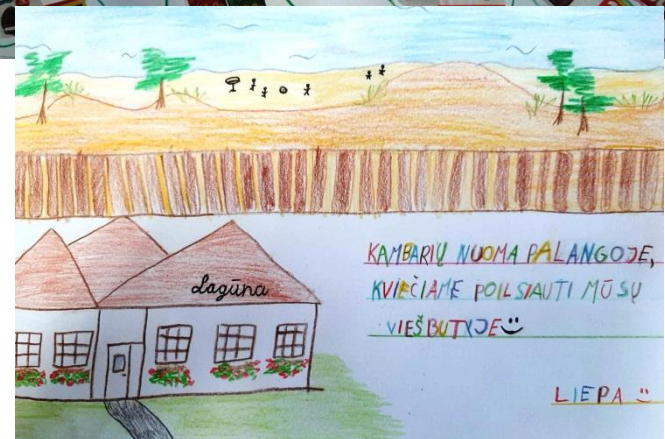 Lagūna
KAMBARIŲ NUOMA PALANGOJE,
KVIEČIAME POILSIAUTI MŪSŲ
VIEŠBUTYJE
LIEPA